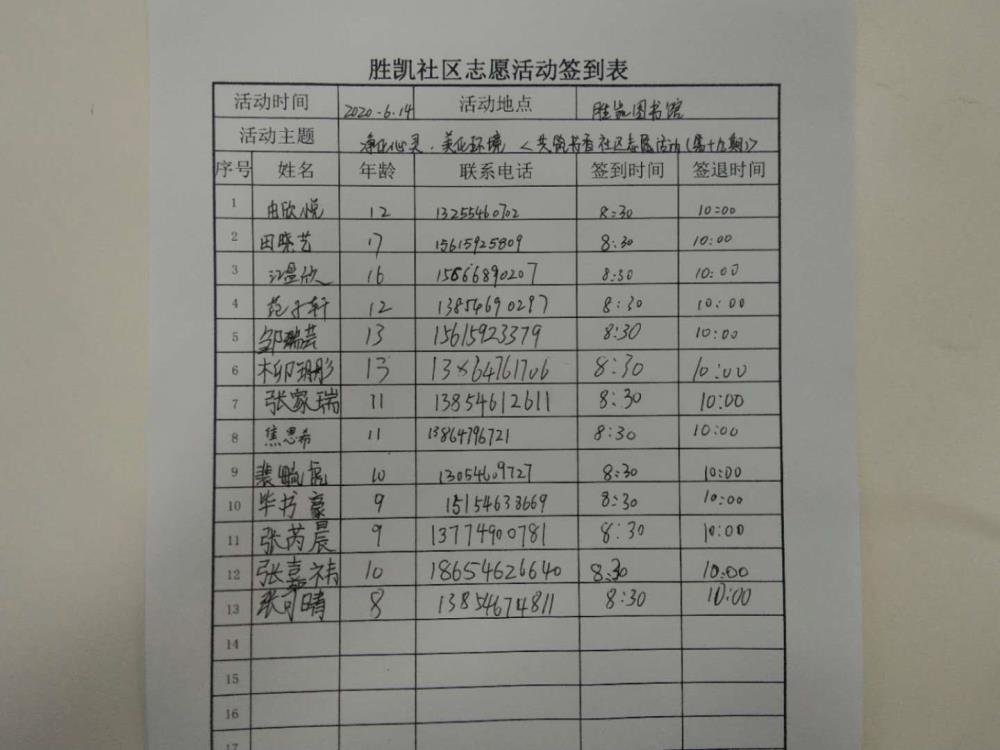 胜凯社区志愿活动签到表
活动时间 2020.6.14 活动地点 胜凯图书馆
活动主题 净化心灵.美化环境 <共筑书香社区志愿活动(第十九期)>
序号 姓名 年龄 联系电话 签到时间 签退时间
1 由欣悦 12 13255460702 8:30 10:00
2 田晓艺 17 15615925809 8:30 10:00
3 16 15866890207 8:30 10:00
4 范子轩 12 13854690297 8:30 10:00
5 邹瑞芸 13 15615923379 8:30 10:00
6 柳珊彤 13 13864761706 8:30 10:00
7 张家瑞 11 13854612611 8:30 10:00
8 焦思希 11 13864796721 8:30 10:00
9 裴毓彪 10 13054609727 8:30 10:00
10 毕书豪 9 15154638669 8:30 10:00
11 张芮晨 9 13774900781 8:30 10:00
12 张嘉祎 10 18654626640 8:30 10:00
13 张可晴 8 13854674811 8:30 10:00
14
15
16
17